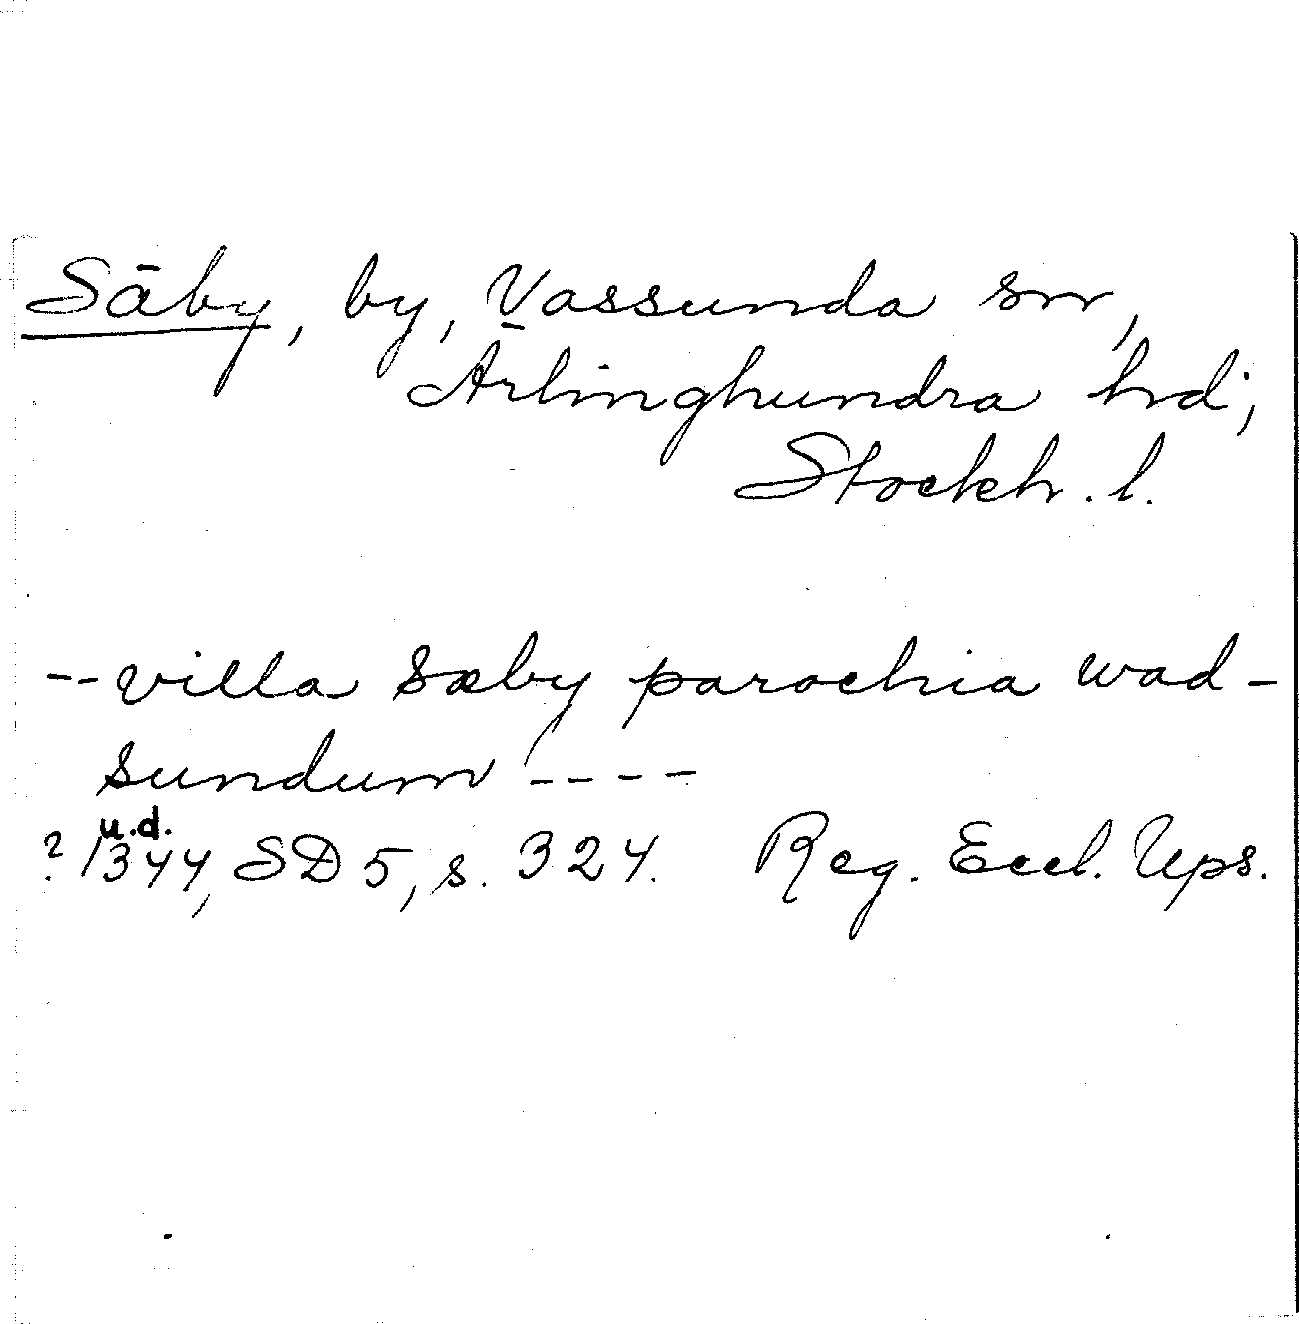 Säby, by, Vassunda sn,
Ärlinghundra hd,
Stockh. l.
-- villa sæby parochia wad-
sundum ----
u.d.
? 1344, SD 5, s. 324. Reg. Eccl. Ups.